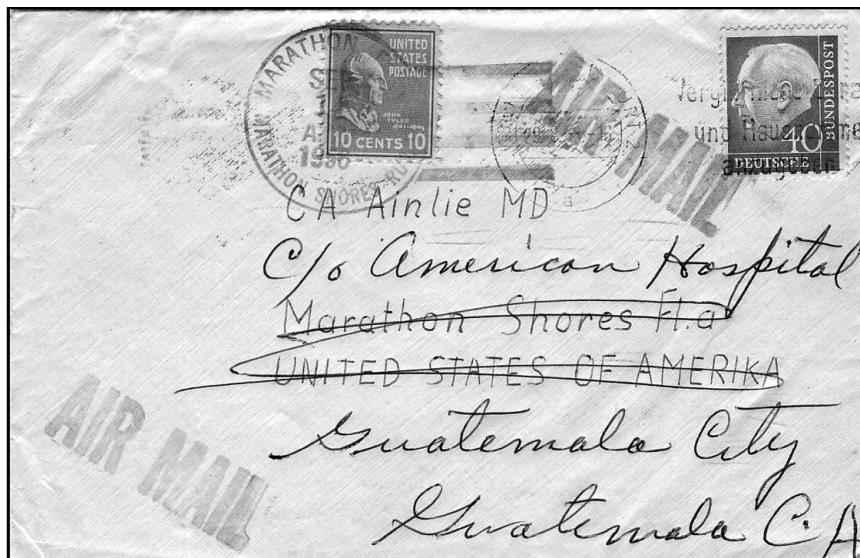 MARATHON
MARATHON SHORES RU
1956
UNITED
STATES
POSTAGE
JOHN
TYLER
1841-1845
10 CENTS 10
AIR MAIL
BUNDESPOST
40
DEUTSCHE
und
anzugeben
CA Ainlie MD
C/o American Hospital
Marathon Shores Fl.a
UNITED STATES OF AMERIKA
Guatemala City
Guatemala C.A
AIR MAIL